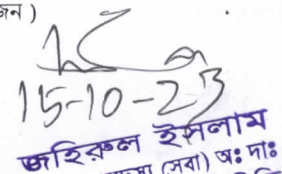 জন)
15-10-23
জহিরুল ইসলাম
(সেবা) অঃ দাঃ